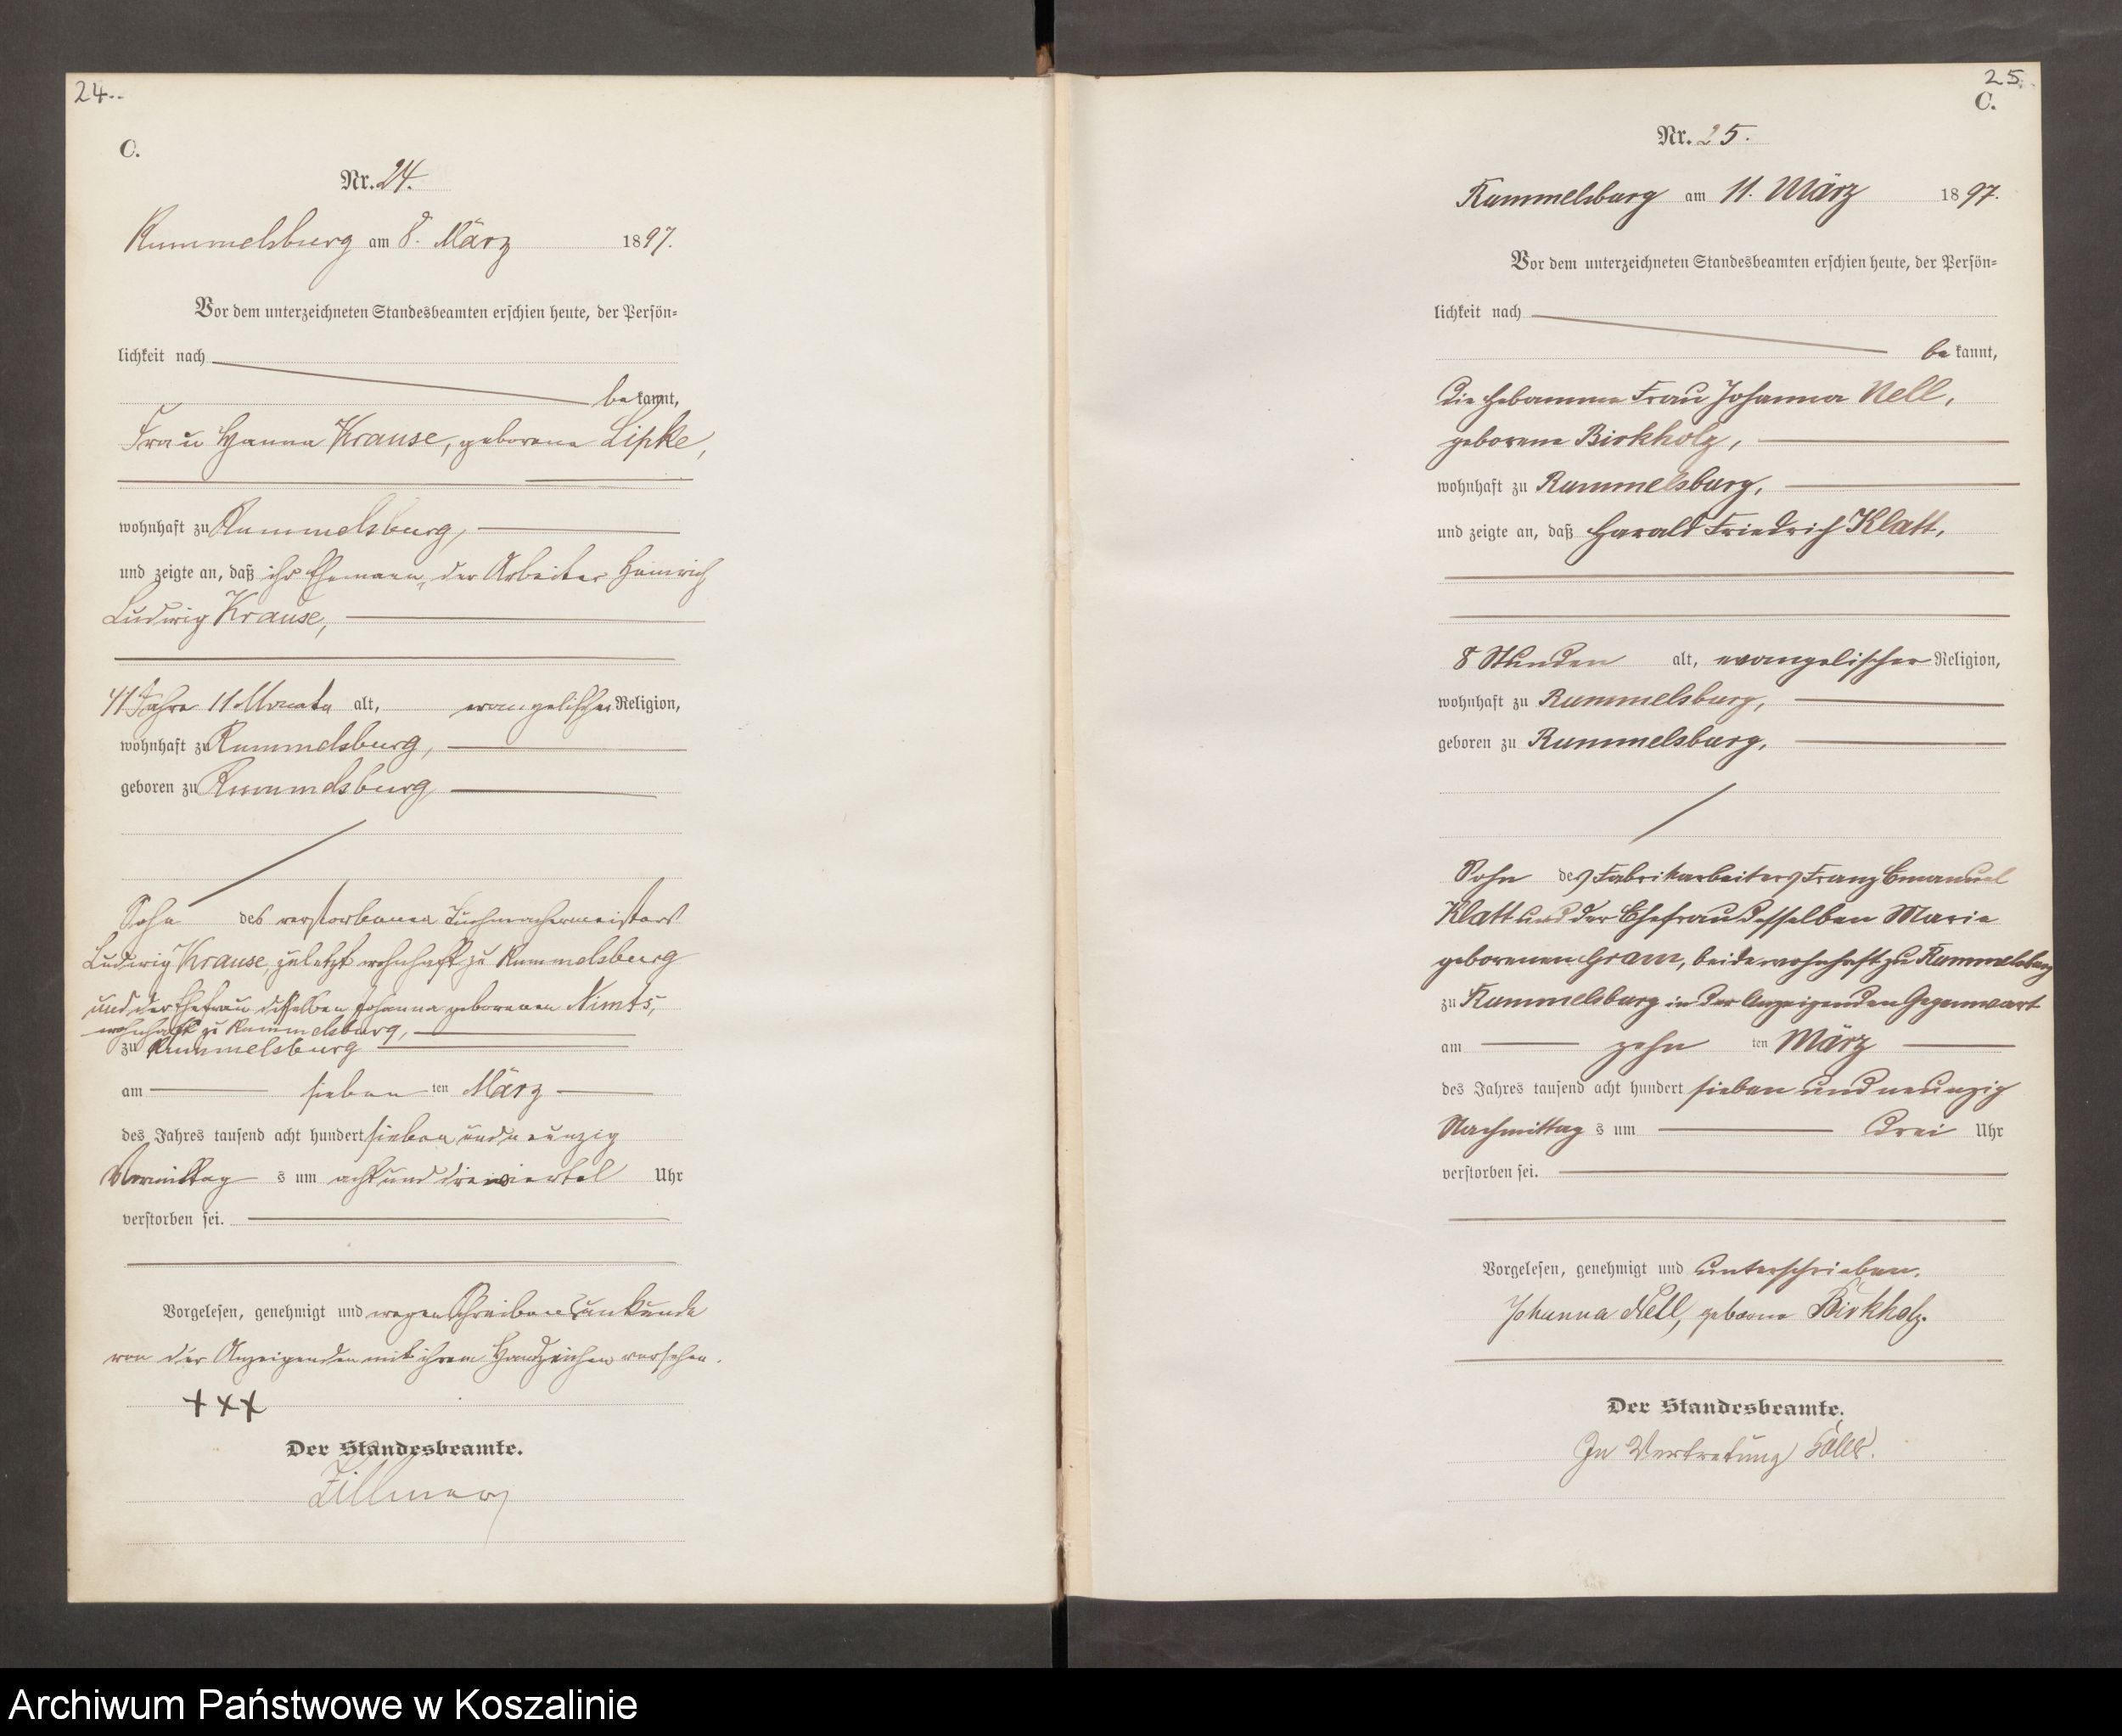 24.
C.
Nr. 24.
Rummelsburg am 8. März 1897.
Vor dem unterzeichneten Standesbeamten erschien heute, der Persön=
lichkeit nach
be kannt,
Frau Hanna Krause, geborene Lipke,
wohnhaft zu Rummelsburg,
und zeigte an, daß ihr Ehemann, der Arbeiter Heinrich
Ludwig Krause,
41 Jahre 11 Monate alt, evangelischer Religion,
wohnhaft zu Rummelsburg,
geboren zu Rummelsburg
Sohn des verstorbenen Tuchmachermeisters
Ludwig Krause, zuletzt wohnhaft zu Rummelsburg
und der Ehefrau desselben Johanna geborenen Nimts,
wohnhaft zu Rummelsburg,
zu Rummelsburg
am sieben ten März
des Jahres tausend acht hundert sieben und neunzig
Vormittag s um acht und dreiviertel Uhr
verstorben sei.
Vorgelesen, genehmigt und wegen Schreibensunkunde
von der Anzeigenden mit ihrem Handzeichen versehen.
+++
Der Standesbeamte.
Zillmer
25.
C.
Nr. 25.
Rummelsburg am 11. März 1897.
Vor dem unterzeichneten Standesbeamten erschien heute, der Persön=
lichkeit nach
be kannt,
die Hebamme Frau Johanna Nell,
geborene Birkholz,
wohnhaft zu Rummelsburg,
und zeigte an, daß Harald Friedrich Klatt,
8 Stunden alt, evangelischer Religion,
wohnhaft zu Rummelsburg,
geboren zu Rummelsburg,
Sohn des Fabrikarbeiters Franz Emanuel
Klatt und der Ehefrau desselben Marie
geborenen Gram, beide wohnhaft zu Rummelsburg
zu Rummelsburg in der Anzeigenden Gegenwart
am zehn ten März
des Jahres tausend acht hundert sieben und neunzig
Nachmittag s um drei Uhr
verstorben sei.
Vorgelesen, genehmigt und unterschrieben.
Johanna Nell, geborne Birkholz.
Der Standesbeamte.
In Vertretung
Archiwum Państwowe w Koszalinie